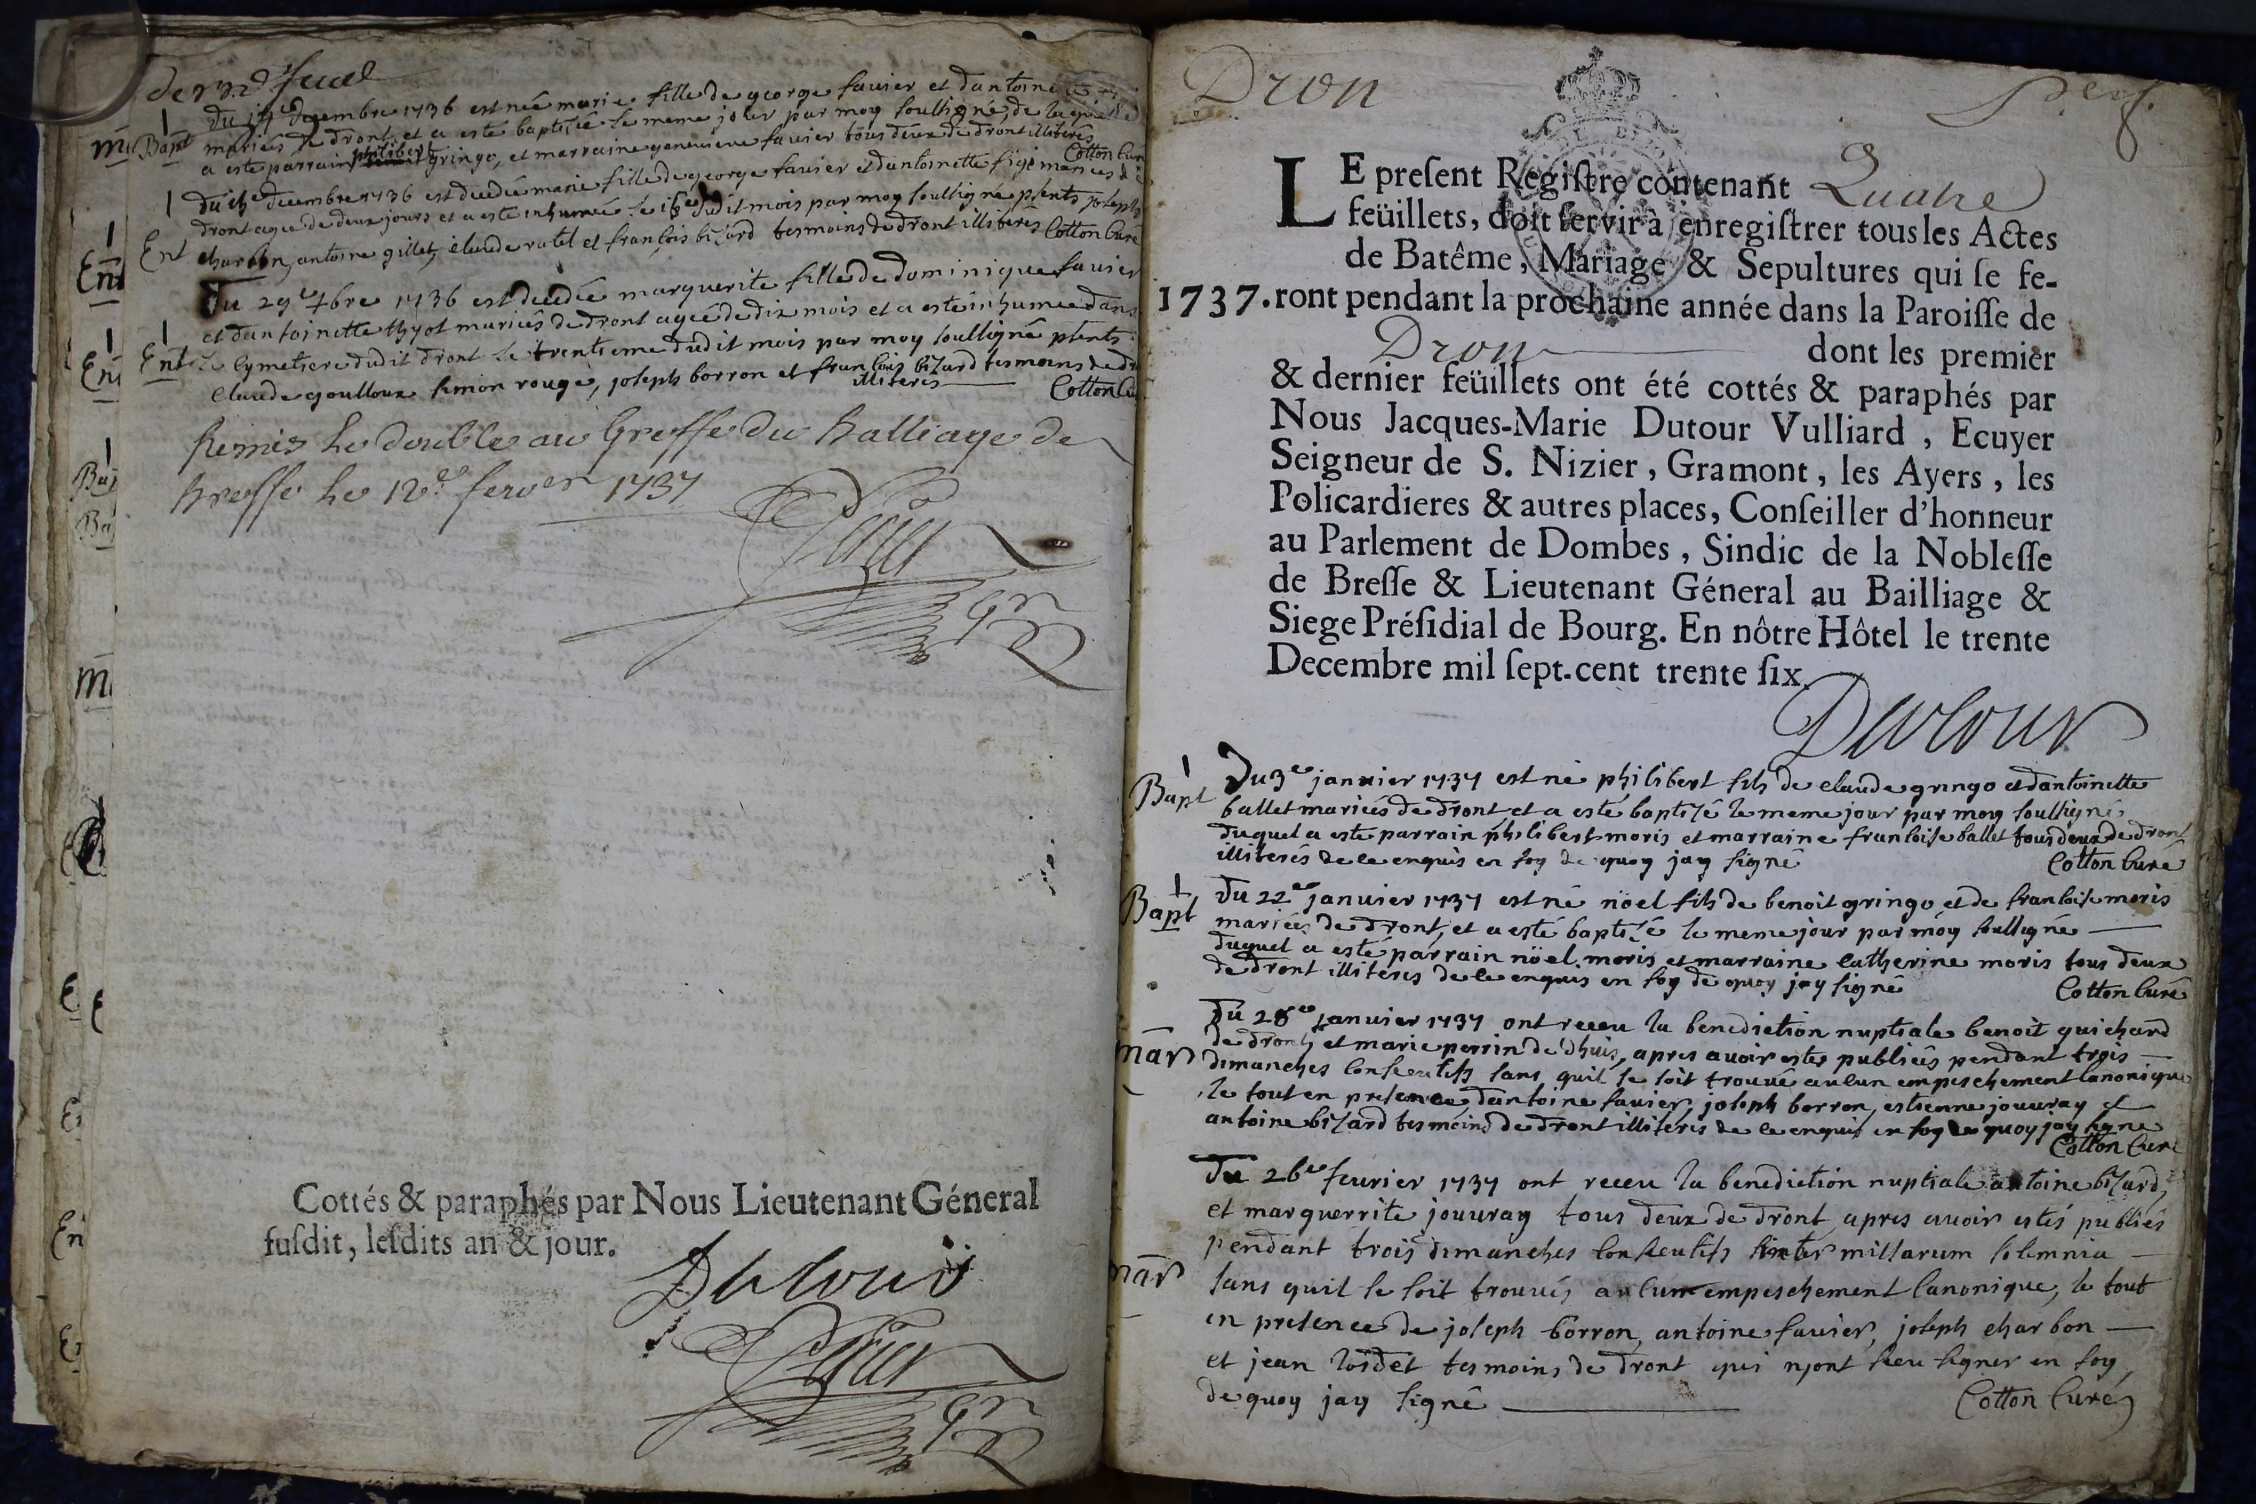 Du decembre 1736 est née marie fille de george favier et dantoine
Bapt mariés de dront et a esté baptisée le meme jour par moy soussigné, de laquelle
a esté parrain philibert gringo, et marraine genevieve favier tous deux de dront illiterés
Cotton Curé
decembre 1736 est decedée marie fille de george favier et dantoinette mariés de
dront agée de deux jours et a esté inhumée le dudit mois par moy soussigné pñts joseph
Ent charbon, antoine gillet, claude ratel et françois bizard tesmoins de dront illiterés Cotton Curé
Du 29e xbre 1736 est decedée marguerite fille de dominique favier
et dantoinette thyot mariés de dront agée de dix mois et a esté inhumée dans
Ent le cymetiere dudit dront le trentieme dudit mois par moy soussigné pñts
claude goulloux simon rouge, joseph borron et françois bizard tesmoins de
illiterés Cotton Cu
Remis le double au Greffe du balliage de
bresse le 12e 1737
Cottés & paraphés par Nous Lieutenant Géneral
fufdit, lefdits an & jour.
Dutour
Dron
LE prefent Regiftre contenant Quatre
feüillets, doit fervir à enregiftrer tous les Actes
de Batême, Mariage & Sepultures qui fe fe-
1737. ront pendant la prochaine année dans la Paroiffe de
Dron dont les premier
& dernier feüillets ont été cottés & paraphés par
Nous Jacques-Marie Dutour Vulliard, Ecuyer
Seigneur de S. Nizier, Gramont, les Ayers, les
Policardieres & autres places, Confeiller d'honneur
au Parlement de Dombes, Sindic de la Nobleffe
de Breffe & Lieutenant Géneral au Bailliage &
Siege Préfidial de Bourg. En nôtre Hôtel le trente
Decembre mil fept-cent trente fix.
Dutour
Bapt Du 3e janvier 1737 est né philibert fils de claude gringo et dantoinette
ballet mariés de dront et a esté baptisé le meme jour par moy soussigné
duquel a esté parrain philibert moris et marraine françoise ballet tous deux de dront
illiterés de ce enquis en foy de quoy jay signé Cotton Curé
Bapt Du 22e janvier 1737 est né nöel fils de benoit gringo et de françoise moris
mariés de dront, et a esté baptisé le meme jour par moy soussigné
duquel a esté parrain nöel moris et marraine catherine moris tous deux
de dront illiterés de ce enquis en foy de quoy jay signé Cotton Curé
Du 28e janvier 1737 ont receu la benediction nuptiale benoit guichard
de dront, et marie perrin de dhuis, apres avoir estes publiés pendant trois
mar dimanches consecutifs sans quil se soit trouvé aucun empeschement canonique
le tout en presence dantoine favier, joseph borron, estienne jouvray et
antoine bizard tesmoins de dront illiterés de ce enquis en foy de quoy jay signé
Cotton Curé
Du 26e fevrier 1737 ont receu la benediction nuptiale antoine bizard,
et marguerrite jouvray tous deux de dront apres avoir estés publiés
pendant trois dimanches consecutifs inter missarum solemnia
mar sans quil se soit trouvés aucun empeschement canonique, le tout
en presence de joseph borron, antoine favier, joseph charbon
et jean tesmoins de dront qui nont sceu signer en foy
de quoy jay signé Cotton Curé